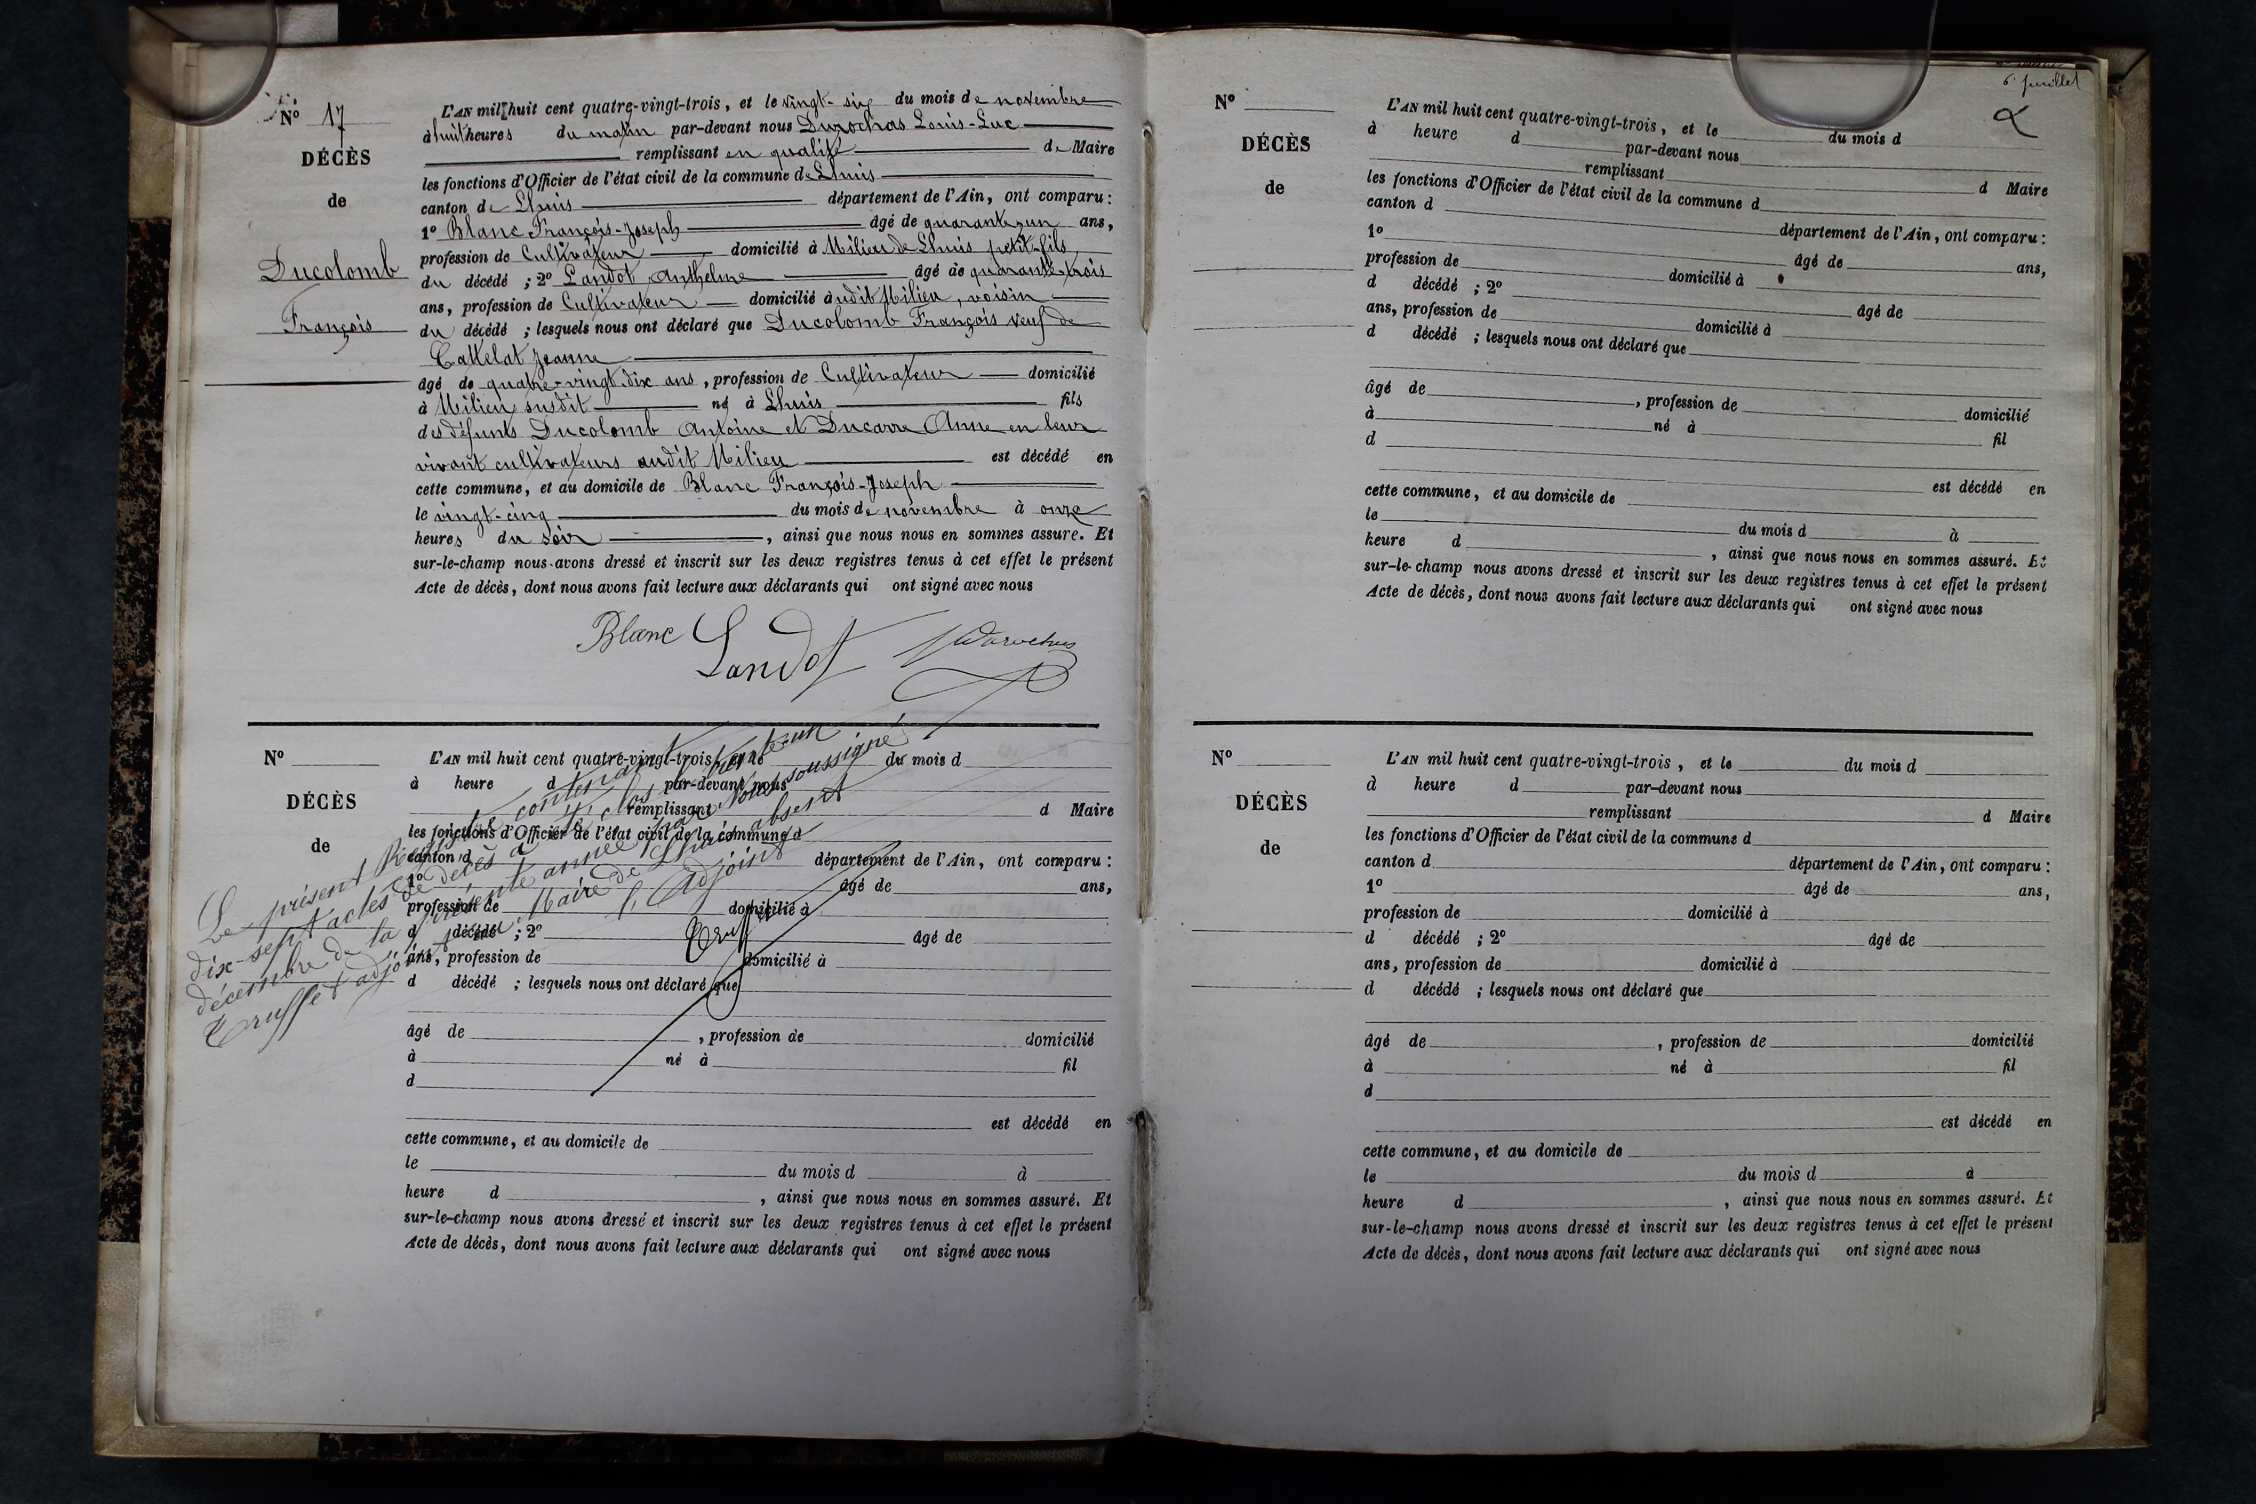 N° 17
DÉCÈS
de
Ducolomb
François
L'AN mil huit cent quatre-vingt-trois, et le vingt-six du mois de novembre
à huit heures du matin par-devant nous Durochas Louis-Luc
remplissant en qualité de Maire
les fonctions d'Officier de l'état civil de la commune de Lhuis
canton de Lhuis département de l'Ain, ont comparu :
1° Blanc François-Joseph âgé de quarante-un ans,
profession de Cultivateur domicilié à Milieu de Lhuis petit-fils
du décédé ; 2° Landot Anthelme âgé de quarante-trois
ans, profession de Cultivateur domicilié audit Milieu, voisin
du décédé ; lesquels nous ont déclaré que Ducolomb François veuf de
Jeanne
âgé de quatre-vingt-dix ans, profession de Cultivateur domicilié
à Milieu susdit né à Lhuis fils
des défunts Ducolomb Antoine et Ducarre Anne en leur
vivant cultivateurs audit Milieu est décédé en
cette commune, et au domicile de Blanc François-Joseph
le vingt-cinq du mois de novembre à onze
heures du soir, ainsi que nous nous en sommes assuré. Et
sur-le-champ nous avons dressé et inscrit sur les deux registres tenus à cet effet le présent
Acte de décès, dont nous avons fait lecture aux déclarants qui ont signé avec nous
Blanc Landot
N°
DÉCÈS
de
L'AN mil huit cent quatre-vingt-trois, et le du mois d
à heure d par-devant nous
remplissant d Maire
les fonctions d'Officier de l'état civil de la commune d
canton d département de l'Ain, ont comparu :
1° âgé de ans,
profession de domicilié à
d décédé ; 2° âgé de
ans, profession de domicilié à
d décédé ; lesquels nous ont déclaré que
âgé de , profession de domicilié
à né à fil
d
est décédé en
cette commune, et au domicile de
le du mois d à
heure d , ainsi que nous nous en sommes assuré. Et
sur-le-champ nous avons dressé et inscrit sur les deux registres tenus à cet effet le présent
Acte de décès, dont nous avons fait lecture aux déclarants qui ont signé avec nous
Le présent Registre contenant
dix-sept actes de décès a été clos le trente-un
décembre de la présente année par Nous soussigné
Truffet adjoint au Maire de Lhuis absent
L'Adjoint
Truffet
6e feuillet
N°
DÉCÈS
de
L'AN mil huit cent quatre-vingt-trois, et le du mois d
à heure d par-devant nous
remplissant d Maire
les fonctions d'Officier de l'état civil de la commune d
canton d département de l'Ain, ont comparu :
1° âgé de ans,
profession de domicilié à
d décédé ; 2° âgé de
ans, profession de domicilié à
d décédé ; lesquels nous ont déclaré que
âgé de , profession de domicilié
à né à fil
d
est décédé en
cette commune, et au domicile de
le du mois d à
heure d , ainsi que nous nous en sommes assuré. Et
sur-le-champ nous avons dressé et inscrit sur les deux registres tenus à cet effet le présent
Acte de décès, dont nous avons fait lecture aux déclarants qui ont signé avec nous
N°
DÉCÈS
de
L'AN mil huit cent quatre-vingt-trois, et le du mois d
à heure d par-devant nous
remplissant d Maire
les fonctions d'Officier de l'état civil de la commune d
canton d département de l'Ain, ont comparu :
1° âgé de ans,
profession de domicilié à
d décédé ; 2° âgé de
ans, profession de domicilié à
d décédé ; lesquels nous ont déclaré que
âgé de , profession de domicilié
à né à fil
d
est décédé en
cette commune, et au domicile de
le du mois d à
heure d , ainsi que nous nous en sommes assuré. Et
sur-le-champ nous avons dressé et inscrit sur les deux registres tenus à cet effet le présent
Acte de décès, dont nous avons fait lecture aux déclarants qui ont signé avec nous